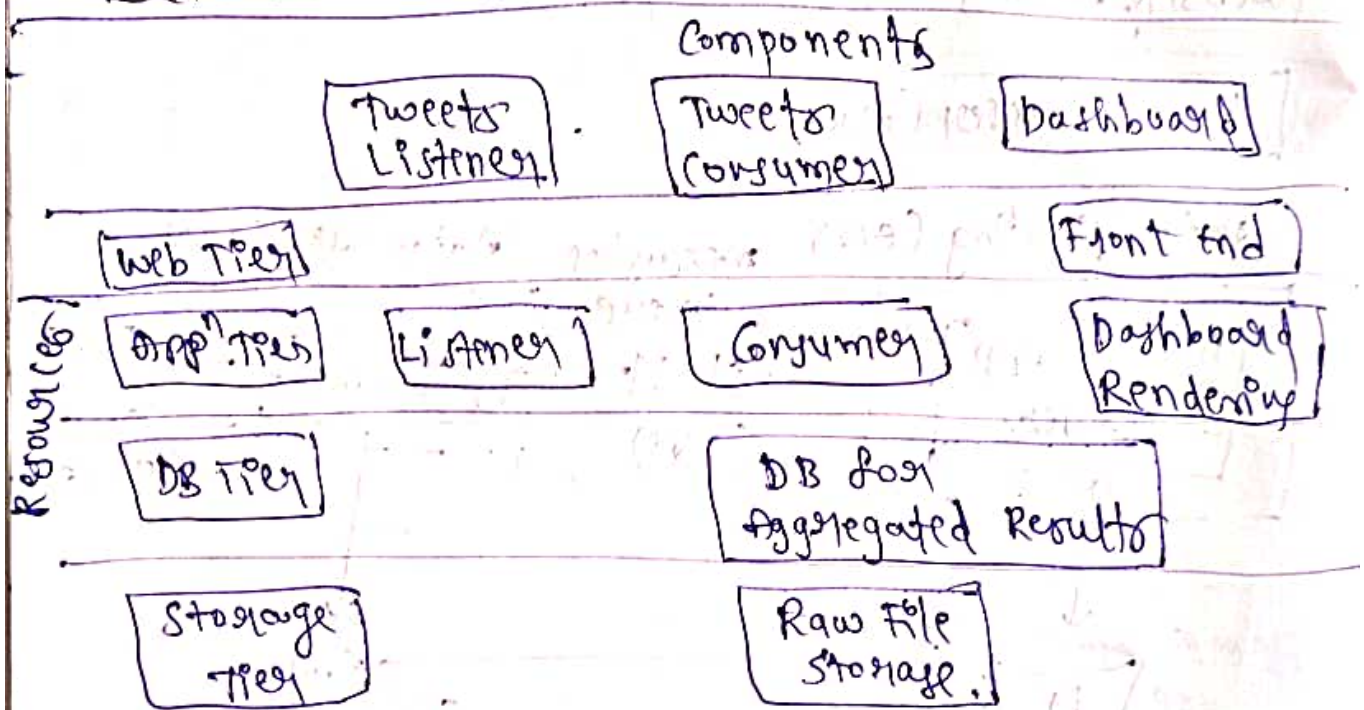 Components
Tweets
Listener
Tweets
Consumer
Dashboard
Web Tier
Front End
Resources
Appⁿ Tier
Listner
Consumer
Dashboard
Rendering
DB Tier
DB for
Aggregated Results
Storage
Tier
Raw File
Storage.